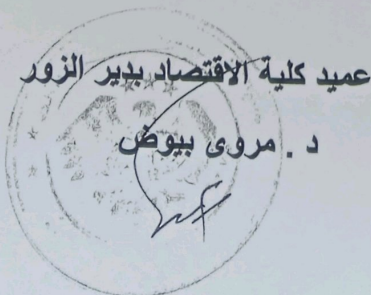 عميد كلية الاقتصاد بدير الزور
د . مروى بيوض